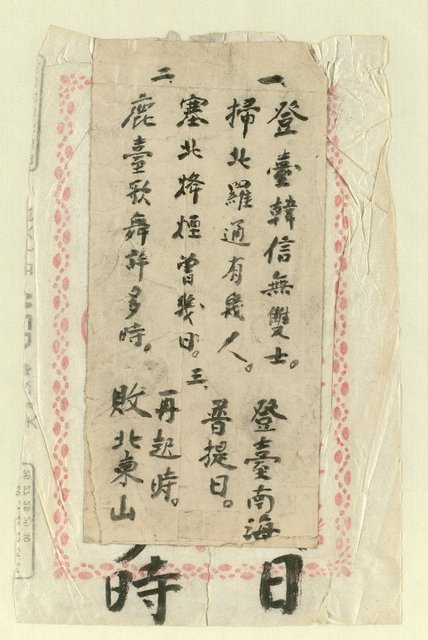 一、登臺韓信無雙士。
掃北羅通有幾人。
二、塞北烽煙曾幾日。
鹿臺歌舞許多時。
三、登臺南海
普提日。
敗北東山
再起時。
日
時